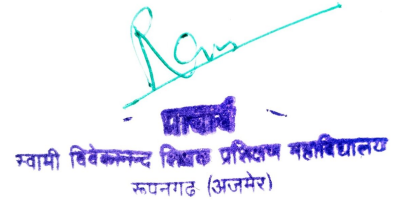 प्राचार्य
स्वामी विवेकानन्द शिक्षक प्रशिक्षण महाविद्यालय
रूपनगढ (अजमेर)